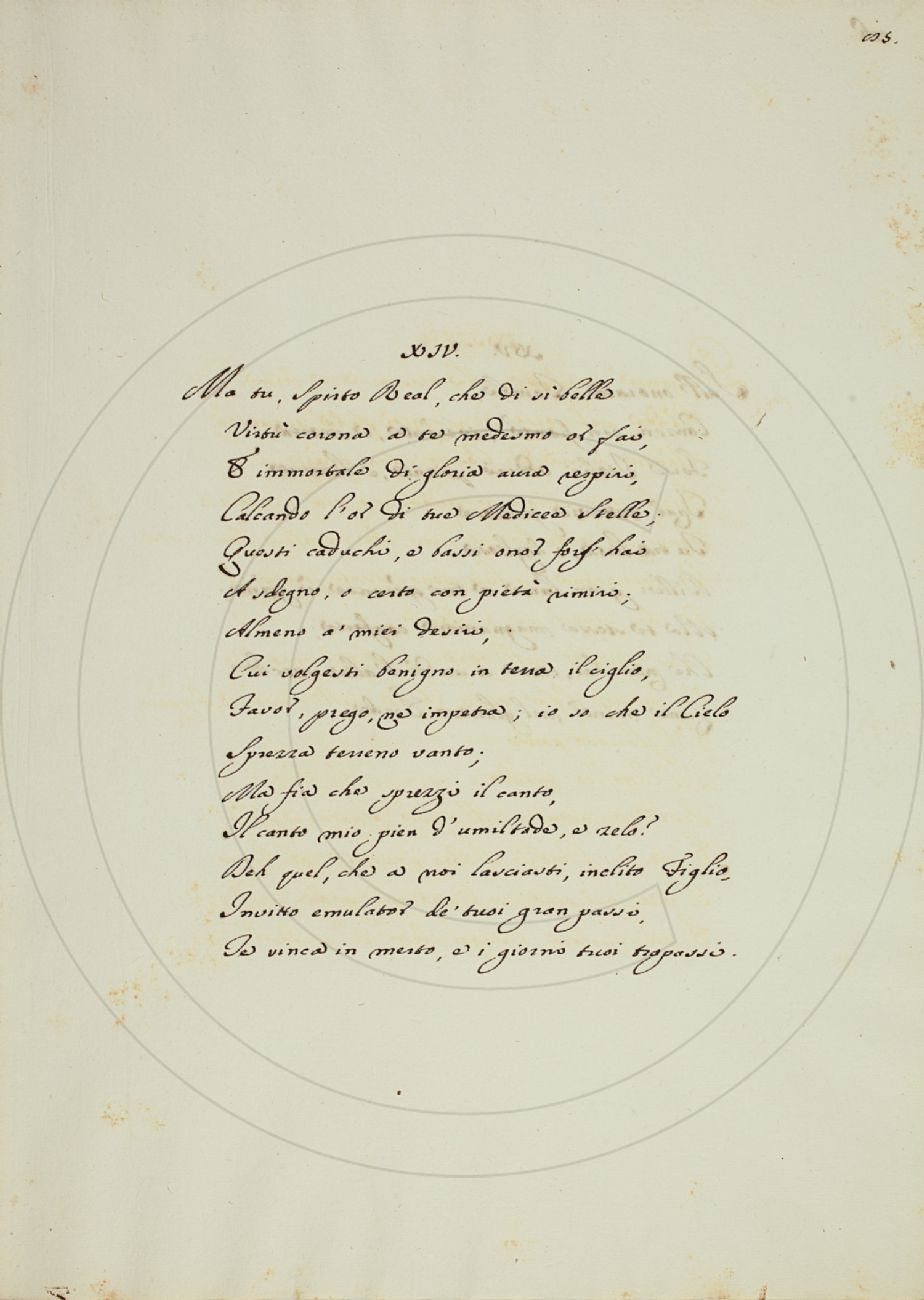 XIV.
Ma tu, Spirto Real, che di sì belle
Virtù corona a te medesmo or fai,
E immortale di gloria aura respiri,
Calcando l'or di tue Medicee Stelle;
Questi caduchi, e bassi onor fors' hai
A sdegno, o certo con pietà rimiri;
Almeno a' miei desiri,
Cui volgesti benigno in terra il ciglio,
Favor, prego, ne impetra; io so che il Cielo
Sprezza terreno vanto;
Ma fia che sprezzi il canto,
Il canto mio pien d'umiltade, e zelo?
Deh quel, che a noi lasciasti, inclito Figlio,
Invitto emulator de' tuoi gran passi,
Te vinca in merto, e i giorni tuoi trapassi.